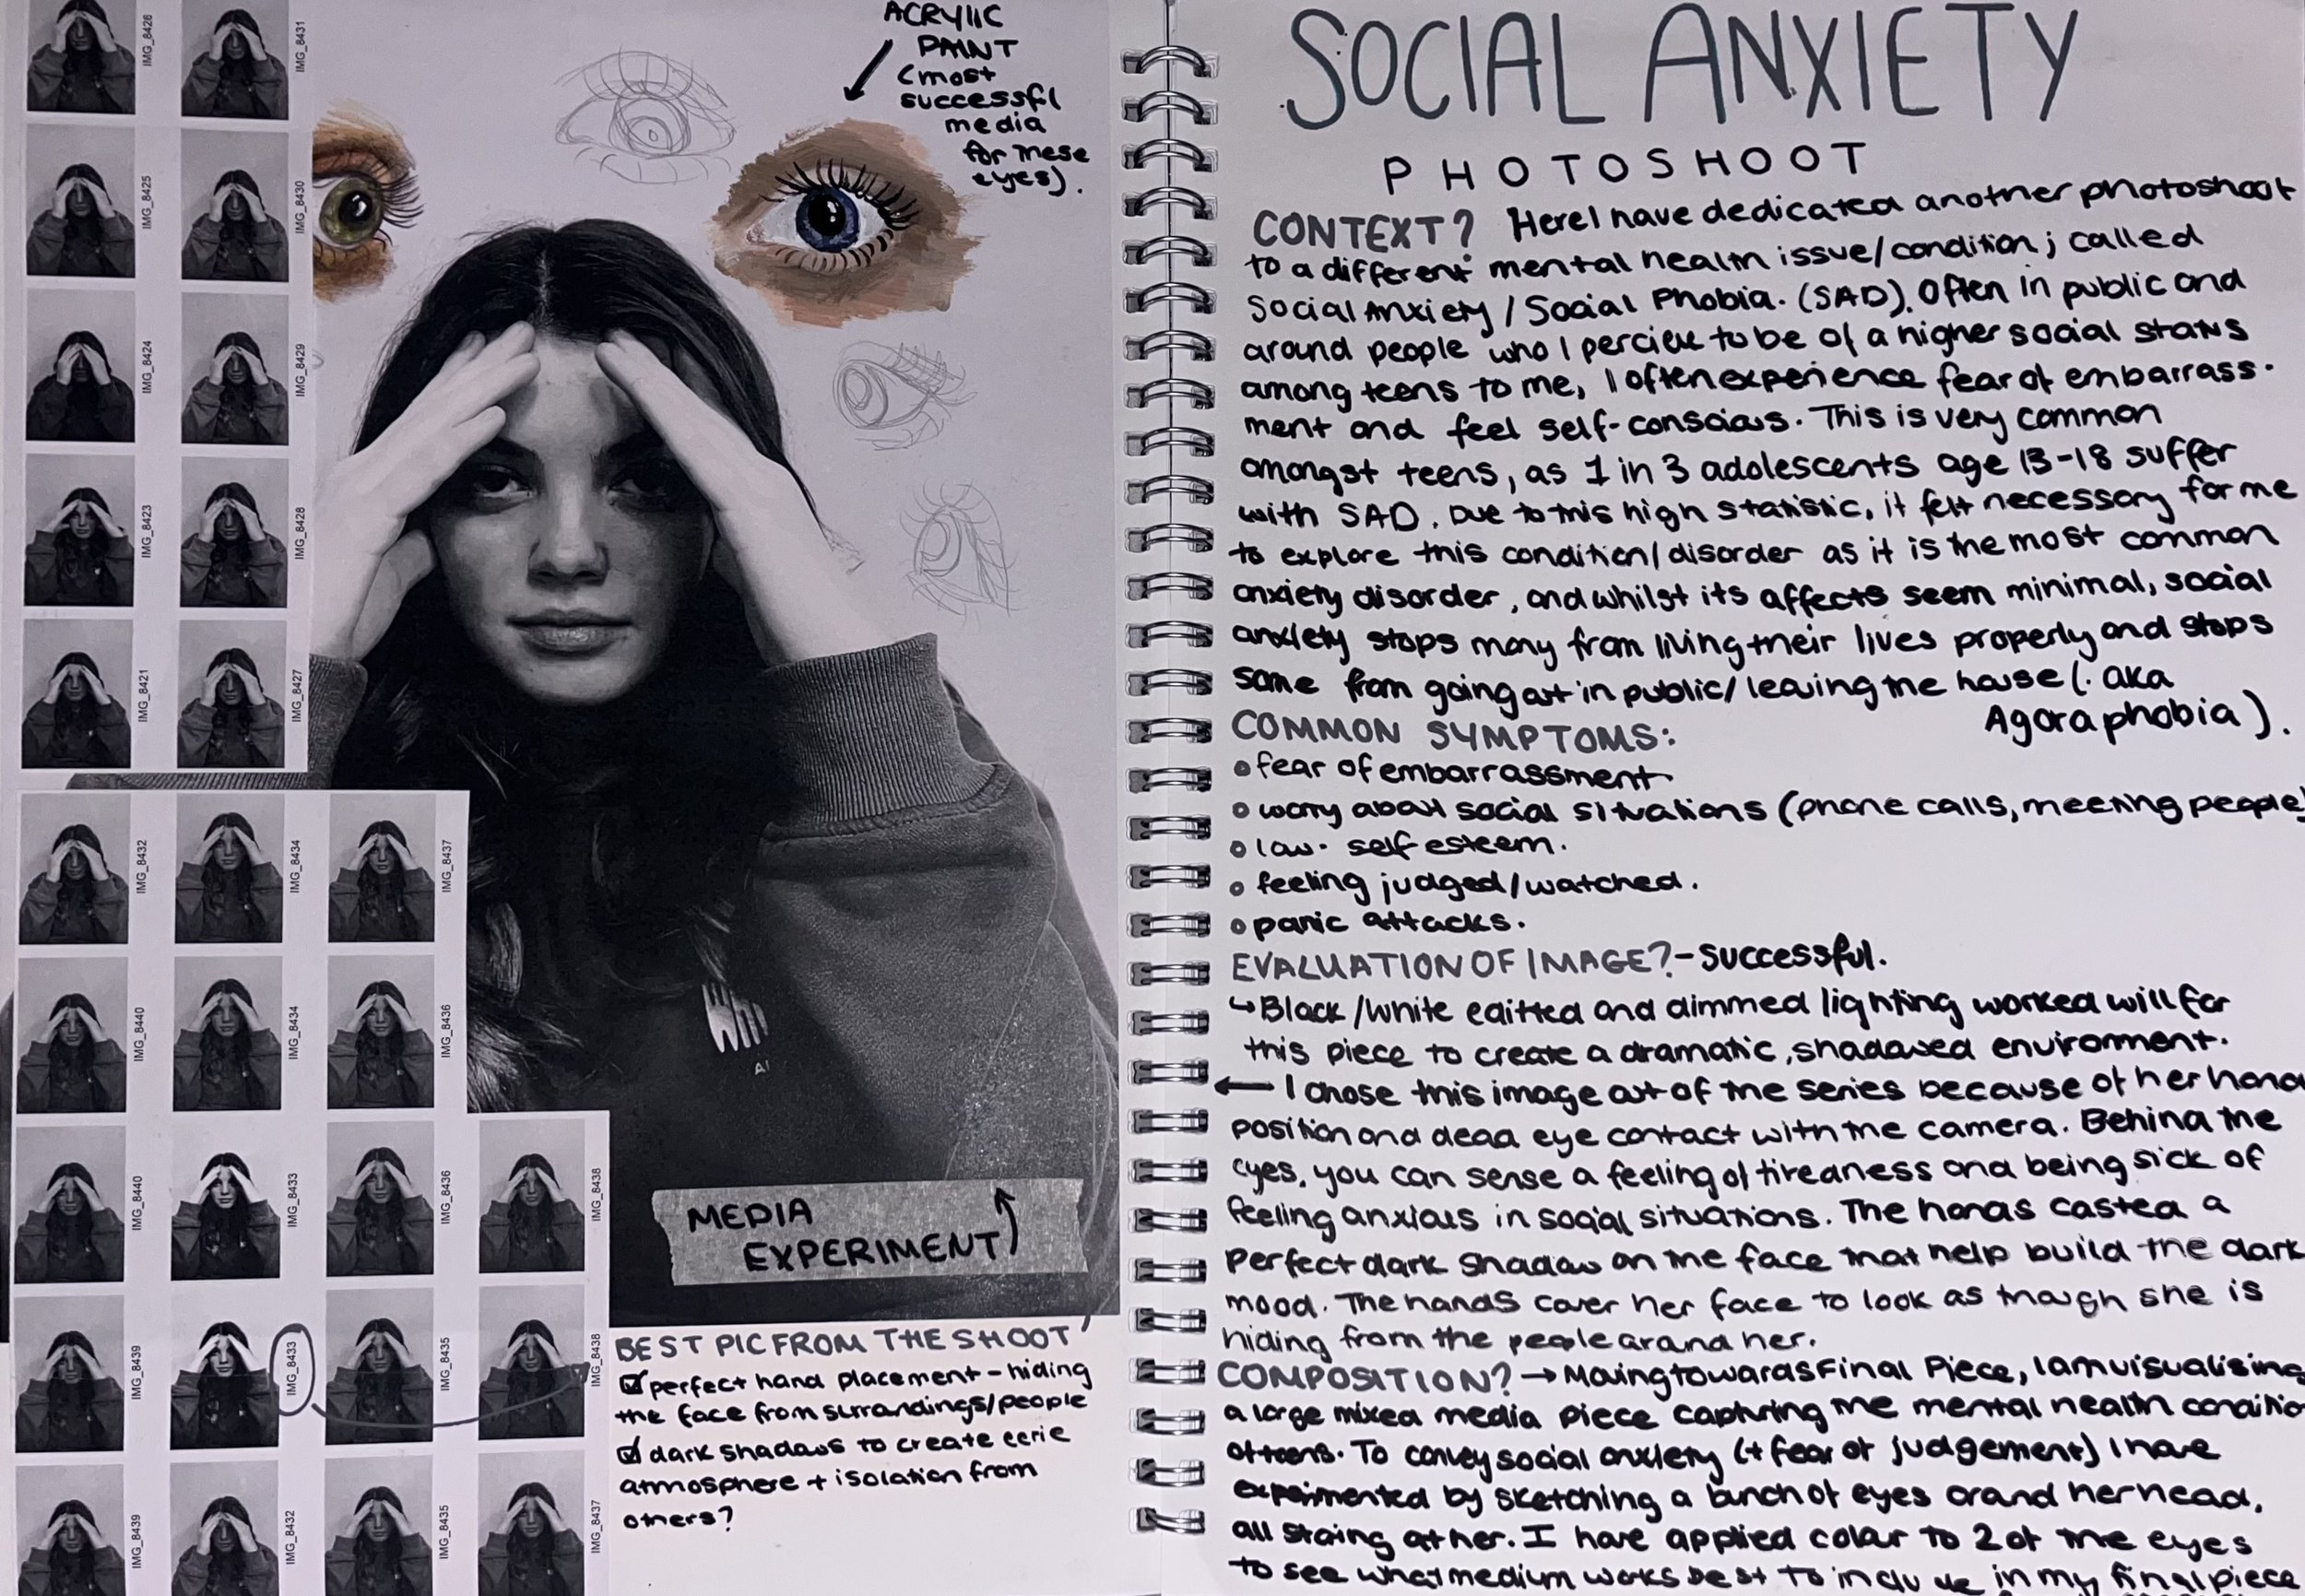 ACRYLIC
PAINT
(most
successfl
media
for these
eyes).
IMG_8426
IMG_8431
IMG_8425
IMG_8430
IMG_8424
IMG_8429
IMG_8423
IMG_8428
IMG_8421
IMG_8427
IMG_8432
IMG_8434
IMG_8437
IMG_8440
IMG_8434
IMG_8436
IMG_8440
IMG_8433
IMG_8436
IMG_8438
IMG_8439
IMG_8433
IMG_8435
IMG_8438
IMG_8439
IMG_8432
IMG_8435
IMG_8437
MEDIA
EXPERIMENT
BEST PIC FROM THE SHOOT
perfect hand placement - hiding
the face from surrandings/people
dark shadows to create eerie
atmosphere + isolation from
others?
SOCIAL ANXIETY
PHOTOSHOOT
CONTEXT? Here I have dedicated another photoshoot
to a different mental health issue/condition; called
Social Anxiety / Social Phobia. (SAD). Often in public and
around people who I percieve to be of a higher social status
among teens to me, I often experience fear of embarrass-
ment and feel self-conscious. This is very common
amongst teens, as 1 in 3 adolescents age 13-18 suffer
with SAD. Due to this high statistic, it felt necessary for me
to explore this condition/disorder as it is the most common
anxiety disorder, and whilst its affects seem minimal, social
anxiety stops many from living their lives properly and stops
some from going out in public/leaving the house (. aka
Agoraphobia).
COMMON SYMPTOMS:
• fear of embarrassment.
• worry about social situations (phone calls, meeting people)
• low self esteem.
• feeling judged/watched.
• panic attacks.
EVALUATION OF IMAGE? - Successful.
↳ Black/white editted and dimmed lighting worked will for
this piece to create a dramatic, shadowed environment.
← I chose this image out of the series because of her hand
position and dead eye contact with the camera. Behind the
eyes, you can sense a feeling of tiredness and being sick of
feeling anxious in social situations. The hands casted a
perfect dark shadow on the face that help build the dark
mood. The hands cover her face to look as though she is
hiding from the people around her.
COMPOSITION? → Moving towards Final Piece, I am visualising
a large mixed media piece capturing the mental health conditio
of teens. To convey social anxiety (+ fear of judgement) I have
experimented by sketching a bunch of eyes around her head,
all staring at her. I have applied colour to 2 of the eyes
to see what medium works best to include in my final piece